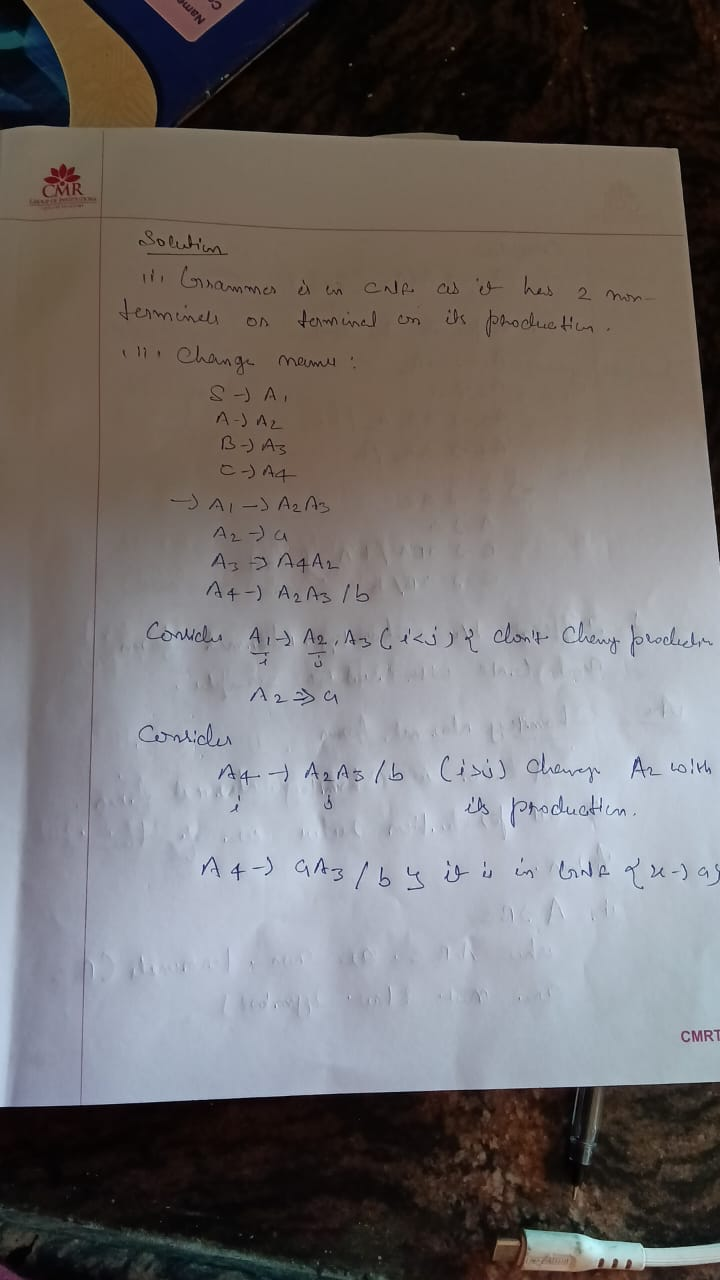 Name
CMR
GROUP OF INSTITUTIONS
Solution
(i) Grammer is in CNF as it has 2 non-
terminals or terminal on its production.
(ii) Change name :
S → A1
A → A2
B → A3
C → A4
→ A1 → A2A3
A2 → a
A3 → A4A2
A4 → A2A3 / b
Consider A1 → A2, A3 (i<j) { don't change production
i j
A2 ⇒ a
Consider
A4 → A2A3 / b (i>j) Change A2 with
i j its production.
A4 → aA3 / b } it is in GNF {x → a
CMRT